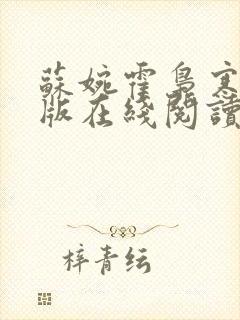 蘇婉霍梟寒
版在綫閱讀
梓青纭